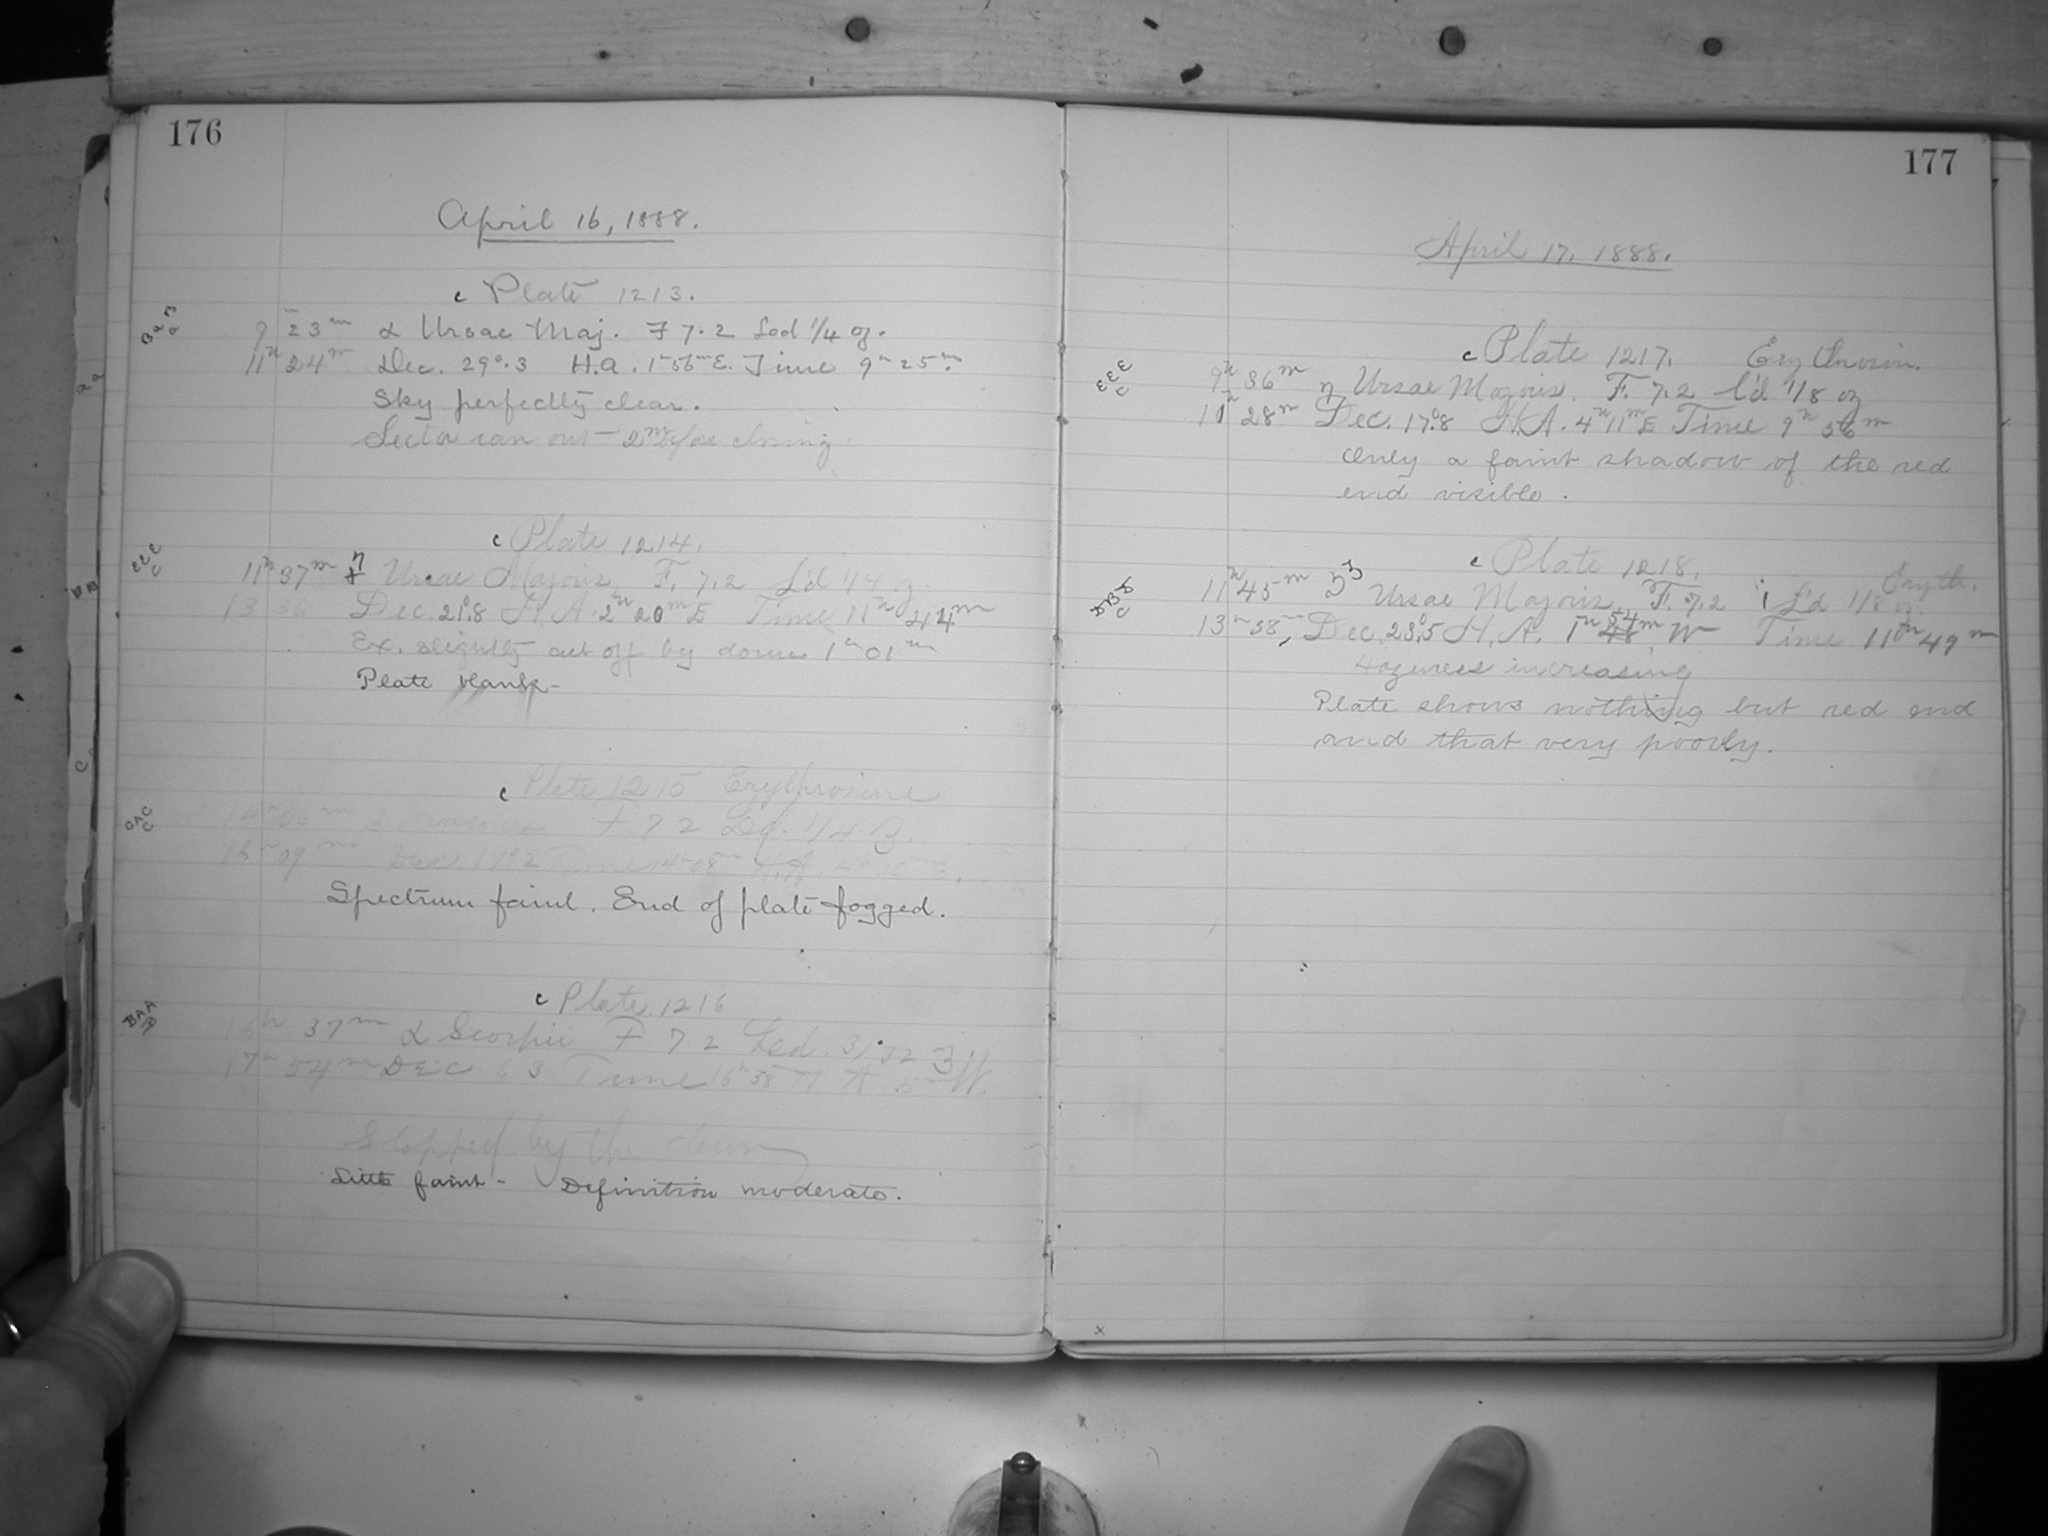 176
April 16, 1888.
c Plate 1213.
BaB
a
9 23m α Ursae Maj. F 7.2 Led 1/4 oz.
11h 24m Dec. 29°.3 H.A. 1h56m E. Time 9h 25m.
Sky perfectly clear.
ran out 2m before closing.
c Plate 1214.
EEE
C
11h 37m η Ursae Majoris F. 7.2 L'd 1/4 oz.
13 36 Dec. 21°.8 H.A. 2h 20m E Time 11h 44m
Ex. slightly cut off by dome 1h 01m
Plate blank
c Plate 1215 Erythrosine
CAC
C
14h 06m F 7 2 Led. 1/4
16h 09m Dec. 19°2 Time 14h08m H.A. E.
Spectrum faint. End of plate fogged.
c Plate 1216
BAA
B
16h 37m α Scorpii F. 7 2 Led. 31.32
17h 54m Dec. 6 3 Time 16h 38 H A W.
Stopped by the dawn
Little faint - Definition moderate.
177
April 17, 1888.
c Plate 1217. Erythrosin.
EEE
C
9h 36m η Ursae Majoris. F. 7.2 L'd 1/8 oz
10h 28m Dec. 17°.8 H.A. 4h 11m E Time 9h 36m
Only a faint shadow of the red
end visible.
c Plate 1218. Eryth.
DBD
C
11h 45m Ursae Majoris. F. 7.2 L'd 1/8 oz.
13h 58m, Dec. 23°.5 H.A. 1h 54m W Time 11h 49m
Haziness increasing
Plate shows nothing but red end
and that very poorly.
x